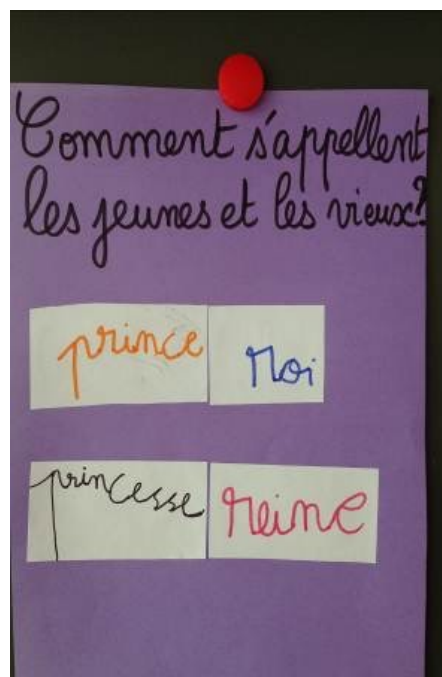 Comment s'appellent
les jeunes et les vieux?
prince roi
princesse reine